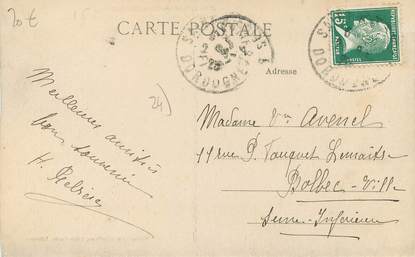 20 €
CARTE POSTALE
Adresse
DORDOGNE
15c
24)
Meilleures amitiés
bon souvenir
H.
Madame Vve Avenel
11 rue P. Fauquet Lemaitre
Bolbec-Ville
Seine-Inférieure